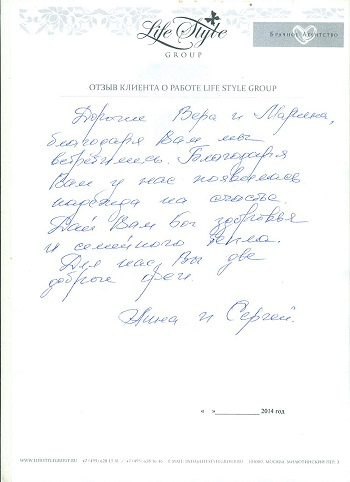 Life Style
GROUP
БРАЧНОЕ АГЕНТСТВО
ОТЗЫВ КЛИЕНТА О РАБОТЕ LIFE STYLE GROUP
Дорогие Вера и Марина,
благодаря Вам мы
встретились. Благодаря
Вам у нас появилась
надежда на счастье.
Дай Вам бог здоровья
и семейного тепла.
Для нас Вы две
добрые феи.
Нина и Сергей.
« » 2014 год